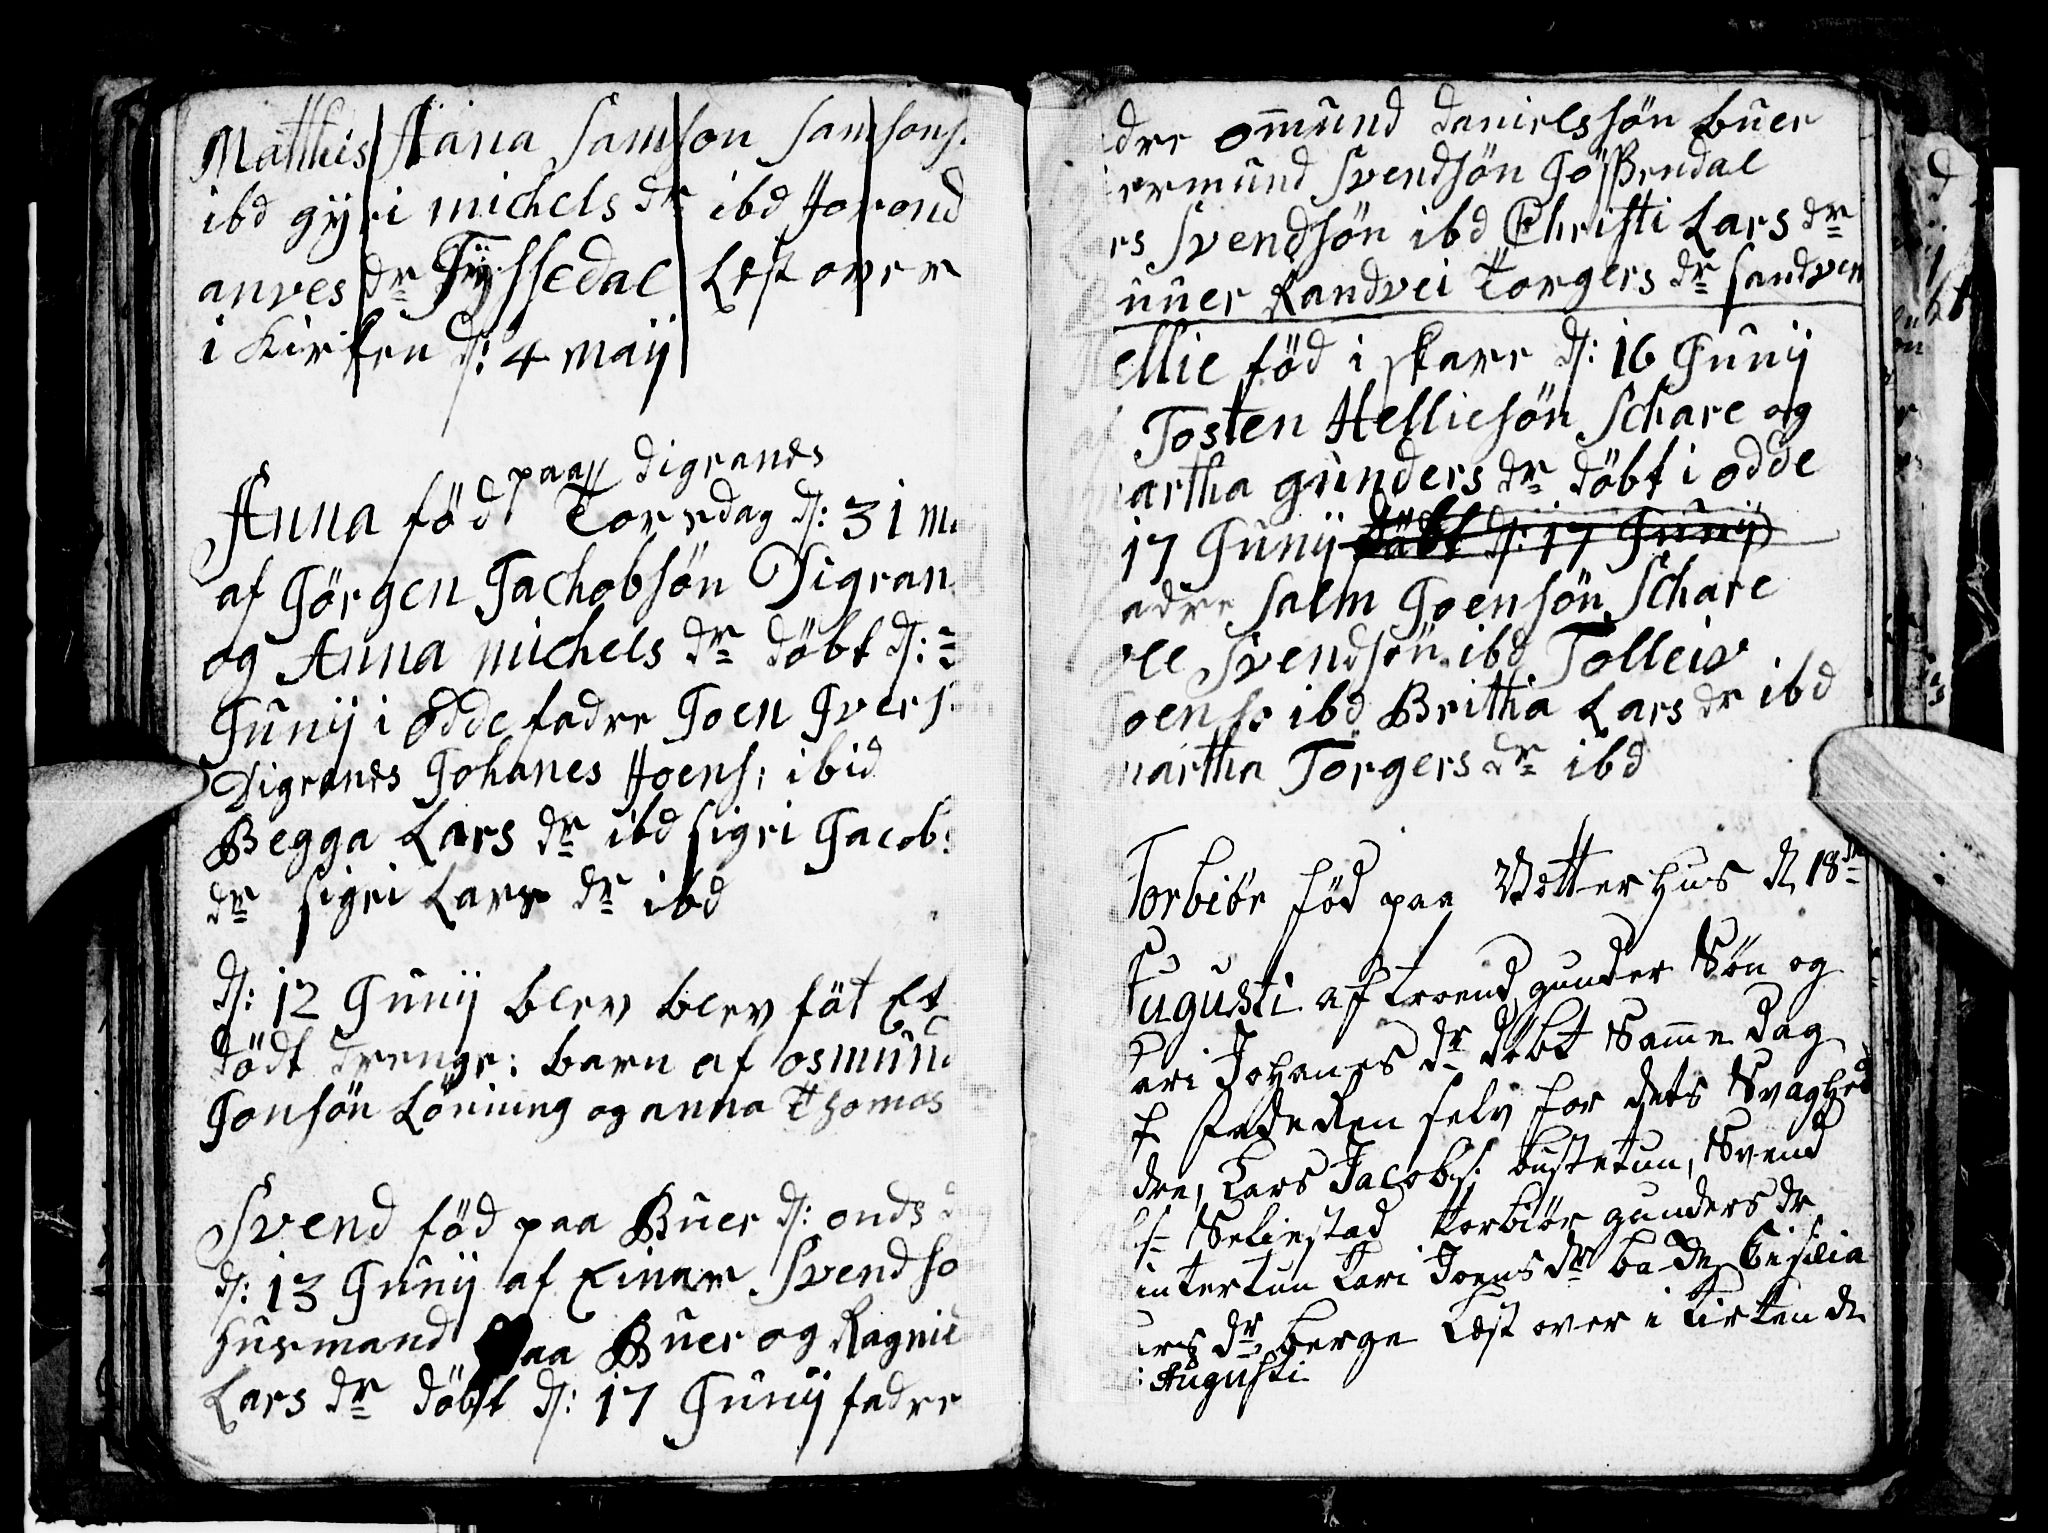 Matthis Aana Samson Samsons.
ibd gyri michels dr ibd Horond
anves dr Tyssedal Lest over
i Kirken d: 4 maij
paa digranes
Anna föd Torsdag d: 31 m
af Jörgen Jachobsön Digran
og Anna michels dr döbt d:
Junij i Odde fadre Joen Ivers
Digranes Johanes Hoens: ibid
Begga Lars dr ibd sigri Jacobs
dr sigri Lars dr ibd
d: 12 Junij blev blev föt Et
dödt drenge: barn af osmund
Jonsön Löning og anna Thomas
Svend föd paa Buer d: onds d
d: 13 Junij af Einar Svendsö
husmand paa Buer og Ragnie
Lars dr döbt d: 17 Junij fadre
dre ommund danielssön buer
ermund Svendsön Jössendal
rs Svendsön ibd Christi Lars dr
uuer Randvei Torgers dr sandven
ellie föd i skare d: 16 Junij
Tosten Helliesön Schare og
artha gunders dr döbt i odde
17 Junij döbt d: 17 Junij
adre salm Joensön Schare
ole Svendsön ibd Tolleiv
oens: ibd Britha Lars dr ibd
martha Törgers dr ibd
Torbiör föd paa Votterhus d 18de
Augusti af troend gunder Sön og
Kari Johanes dr döbt Samme dag
f Faderen selv for dets Svaghed
dre, Lars Jacobs: bustetun, Svend
s: Seliestad torbiör gunders dr
intertun Kari Joens dr ba de, Cisilia
ars dr berge Lest over i Kirken d
: Augusti